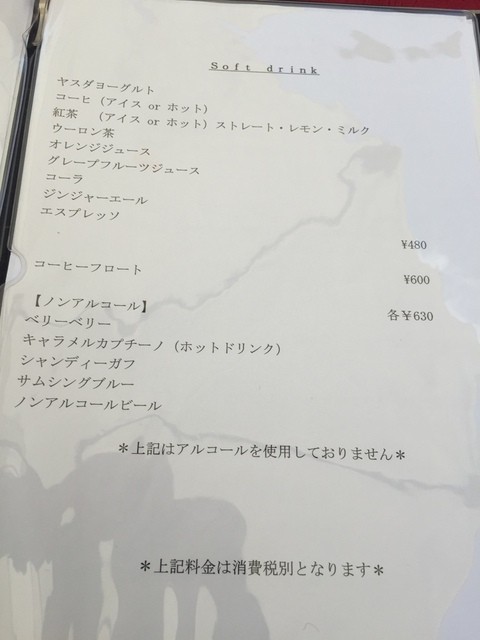 Soft drink
ヤスダヨーグルト
コーヒ（アイス or ホット）
紅茶　（アイス or ホット）ストレート・レモン・ミルク
ウーロン茶
オレンジジュース
グレープフルーツジュース
コーラ
ジンジャーエール
エスプレッソ
¥480
コーヒーフロート
¥600
【ノンアルコール】
各￥630
ベリーベリー
キャラメルカプチーノ（ホットドリンク）
シャンディーガフ
サムシングブルー
ノンアルコールビール
＊上記はアルコールを使用しておりません＊
＊上記料金は消費税別となります＊